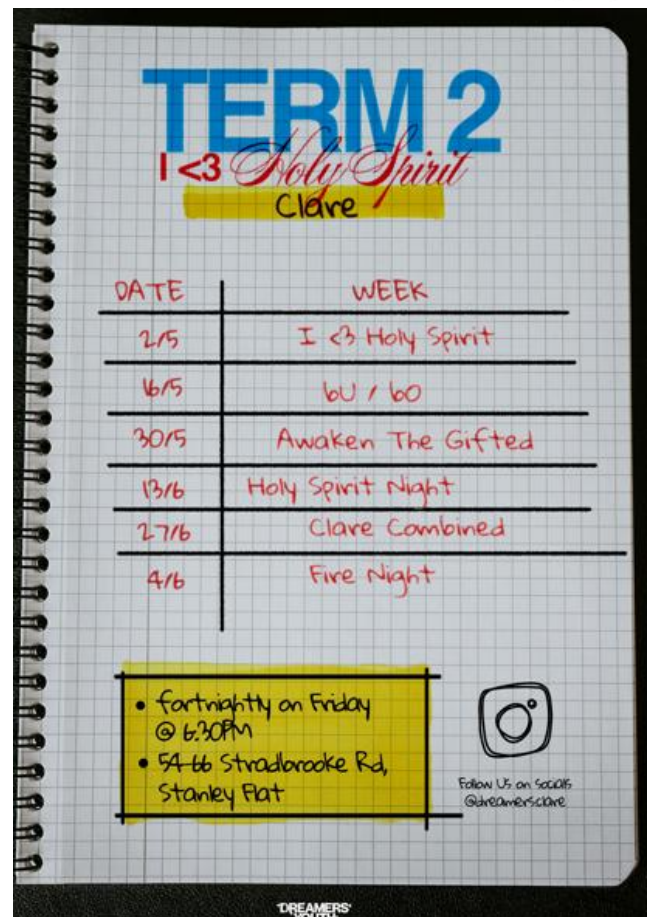 TERM 2
I <3 Holy Spirit
Clare
DATE WEEK
2/5 I <3 Holy Spirit
16/5 bU / bO
30/5 Awaken The Gifted
13/6 Holy Spirit Night
27/6 Clare Combined
4/6 Fire Night
• fortnightly on Friday
@ 6:30PM
• 54-66 Stradbrooke Rd,
Stanley Flat
Follow Us on Socials
@dreamersclare
'DREAMERS'
YOUTH